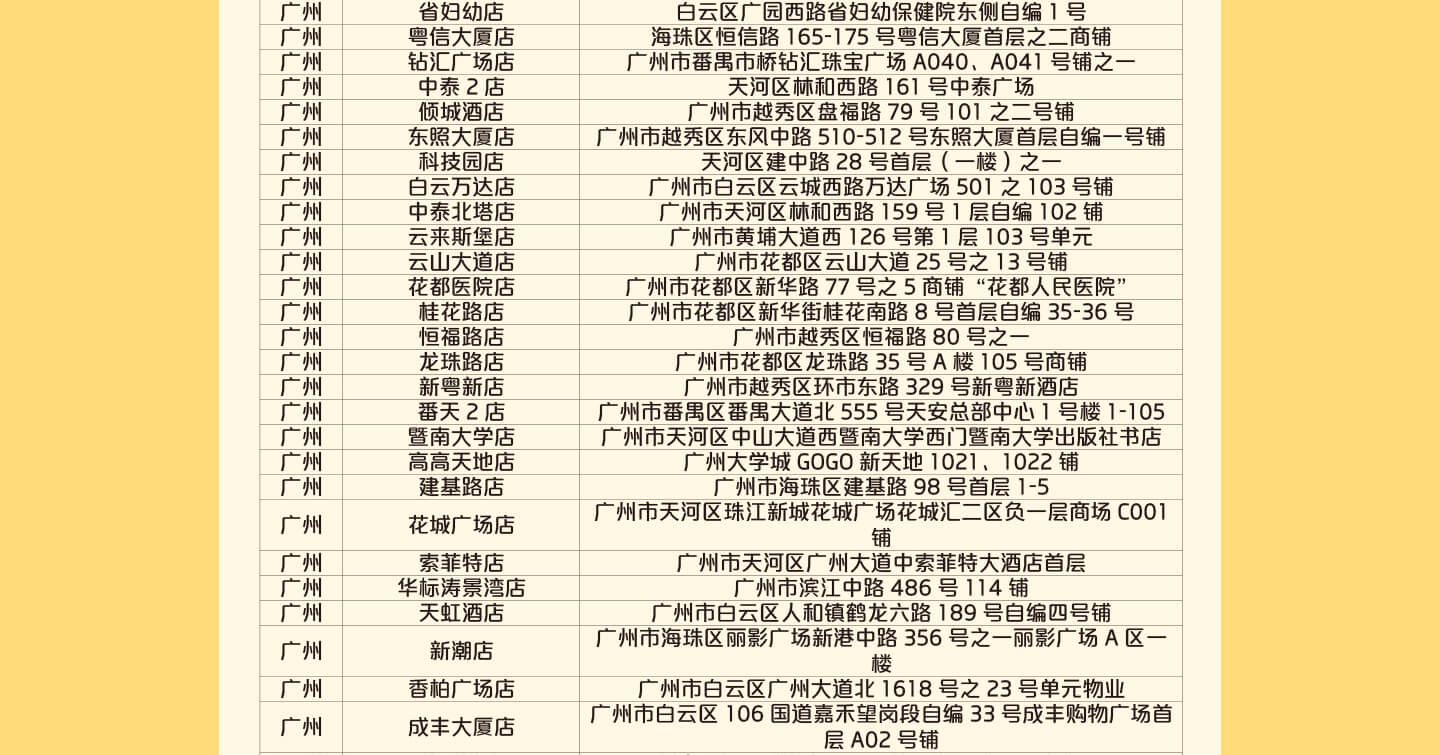 广州 省妇幼店 白云区广园西路省妇幼保健院东侧自编 1 号
广州 粤信大厦店 海珠区恒信路 165-175 号粤信大厦首层之二商铺
广州 钻汇广场店 广州市番禺市桥钻汇珠宝广场 A040、A041 号铺之一
广州 中泰 2 店 天河区林和西路 161 号中泰广场
广州 倾城酒店 广州市越秀区盘福路 79 号 101 之二号铺
广州 东照大厦店 广州市越秀区东风中路 510-512 号东照大厦首层自编一号铺
广州 科技园店 天河区建中路 28 号首层（一楼）之一
广州 白云万达店 广州市白云区云城西路万达广场 501 之 103 号铺
广州 中泰北塔店 广州市天河区林和西路 159 号 1 层自编 102 铺
广州 云来斯堡店 广州市黄埔大道西 126 号第 1 层 103 号单元
广州 云山大道店 广州市花都区云山大道 25 号之 13 号铺
广州 花都医院店 广州市花都区新华路 77 号之 5 商铺“花都人民医院”
广州 桂花路店 广州市花都区新华街桂花南路 8 号首层自编 35-36 号
广州 恒福路店 广州市越秀区恒福路 80 号之一
广州 龙珠路店 广州市花都区龙珠路 35 号 A 楼 105 号商铺
广州 新粤新店 广州市越秀区环市东路 329 号新粤新酒店
广州 番天 2 店 广州市番禺区番禺大道北 555 号天安总部中心 1 号楼 1-105
广州 暨南大学店 广州市天河区中山大道西暨南大学西门暨南大学出版社书店
广州 高高天地店 广州大学城 GOGO 新天地 1021、1022 铺
广州 建基路店 广州市海珠区建基路 98 号首层 1-5
广州 花城广场店 广州市天河区珠江新城花城广场花城汇二区负一层商场 C001
铺
广州 索菲特店 广州市天河区广州大道中索菲特大酒店首层
广州 华标涛景湾店 广州市滨江中路 486 号 114 铺
广州 天虹酒店 广州市白云区人和镇鹤龙六路 189 号自编四号铺
广州 新潮店 广州市海珠区丽影广场新港中路 356 号之一丽影广场 A 区一
楼
广州 香柏广场店 广州市白云区广州大道北 1618 号之 23 号单元物业
广州 成丰大厦店 广州市白云区 106 国道嘉禾望岗段自编 33 号成丰购物广场首
层 A02 号铺